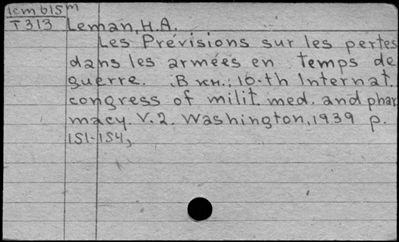 1cm615m
T313 Leman, H.A.
Les Prévisions sur les pertes
dans les armées en temps de
guerre. В кн.: 10-th Internat.
congress of milit. med. and phar
macy. V.2. Washington, 1939 p.
151-154,